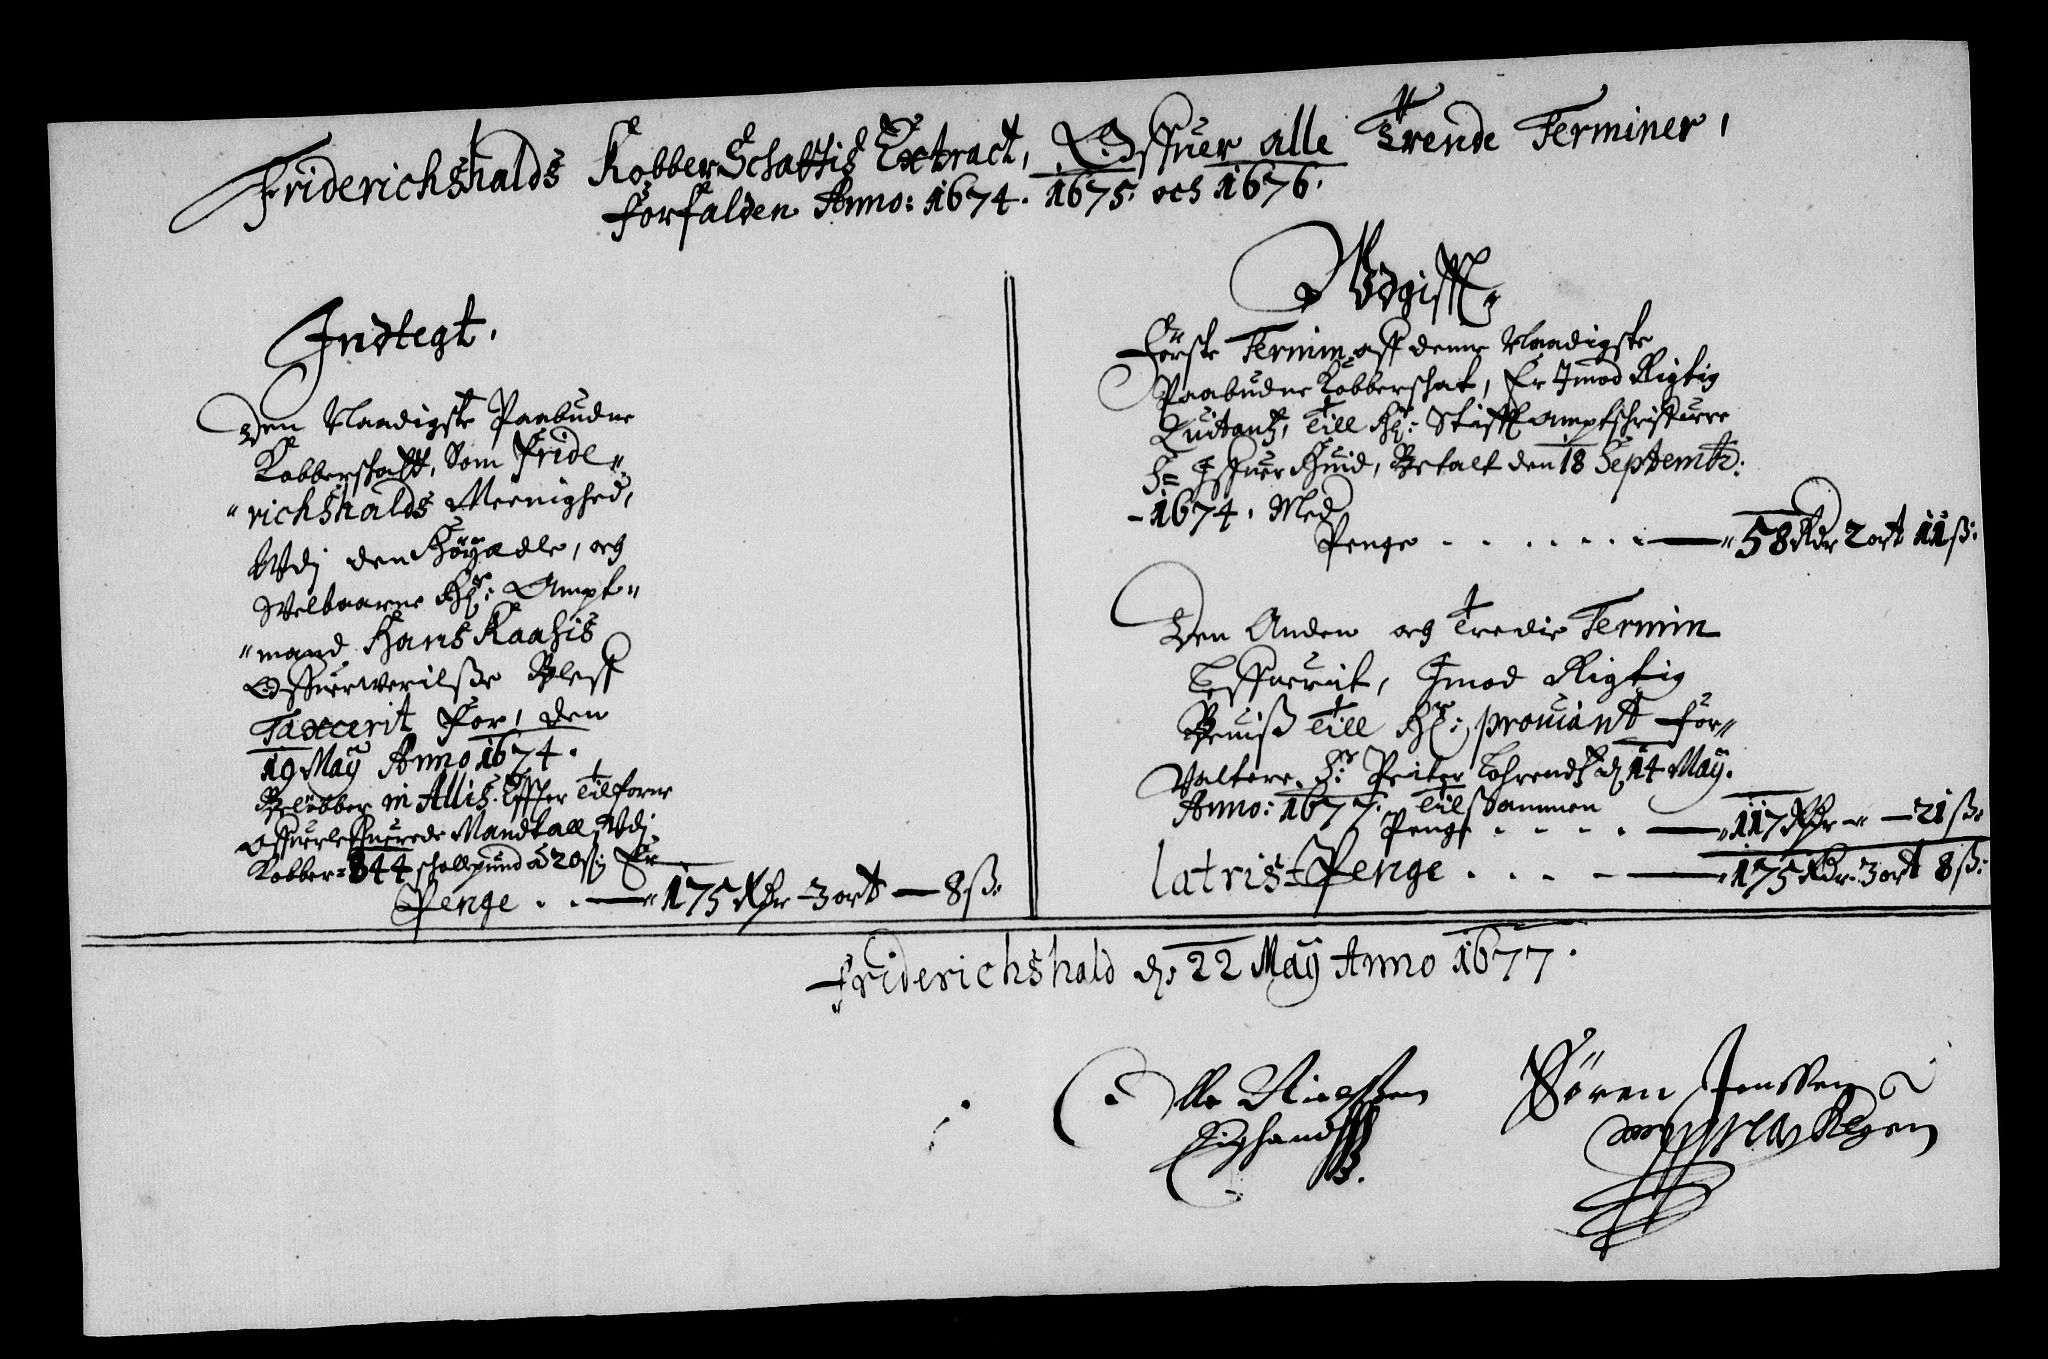 Friderichshalds Kobber Schattis Extract, Offuer alle Trende Terminer,
Forfalden Anno: 1674. 1675. och 1676.
Indtegt.
Den Naadigste Paabudne
Kobberschatt, Som Fride„
„richshalds Meenighed,
Vdj den Höyædle, och
Welbaarne Hr: Ampt„
„mand Hans Kaasis
Offuerwerilsse Bleff
Taxcerit For, den
19 May Anno 1674.
Belöbber in Allis Effter Tilforne
Offuerleffuerede Mandtall, Vdj
Kobber= 844 schallpund à 20 ß Er
Penge . . — 175 Rdr 3 ort — 8 ß.
Vdgifft
Förste Termin aff denne Naadigste
Paabudne Kobberschat, Er Imod Rigtig
Quitantz, Till Hr: Stifft Amptschriffuere
Hr= Iffuer Huid, Betalt den 18 Septembr:
1674. Med
Penge . . . . . . — 58 Rdr 2 ort 11 ß.
Den Anden och Tredie Termin
Leffuerit, Imod Rigtig
Beuiß Till Hr: prouiant For„
Valtere, Hr: Peiter Lohrendtz dn 14 May.
Anno: 1677. Tilsammen
Penge . . . . — 117 Rdr — 21 ß.
latris= Penge . . . — 175 Rdr. 3 ort 8 ß.
Friderichshald dn. 22 May Anno 1677.
Olle Nielssen Sören Jenssen
Eighand